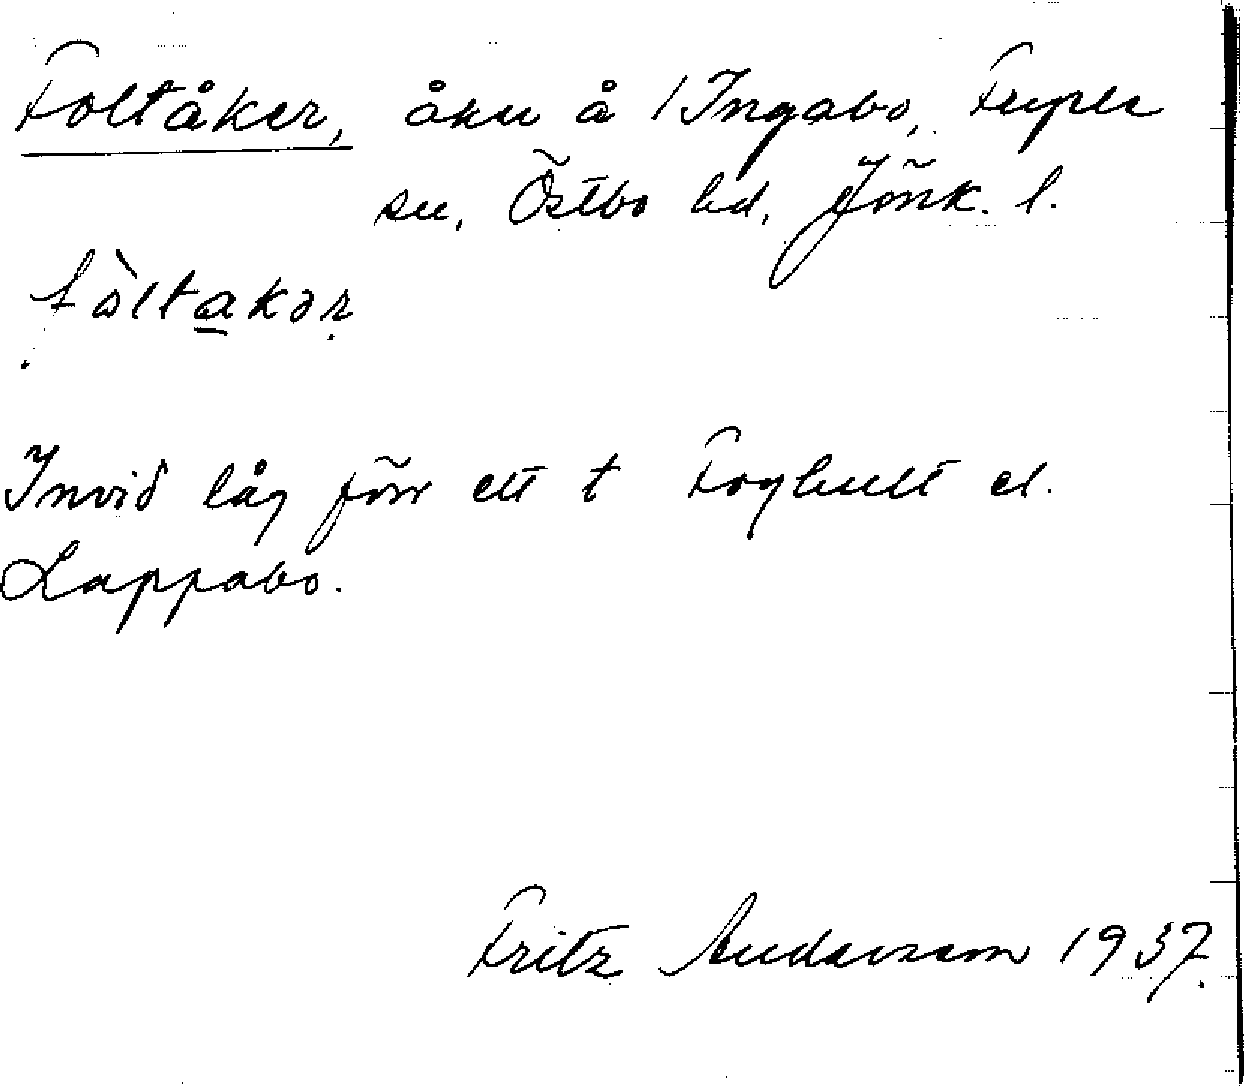 Foltåker, åker å /Ingabo, Fryele
sn, Östbo hd, Jönk. l.
fòltakər
Invid låg förr ett t Foghult el.
Lappabo.
Fritz Andersson 1937.